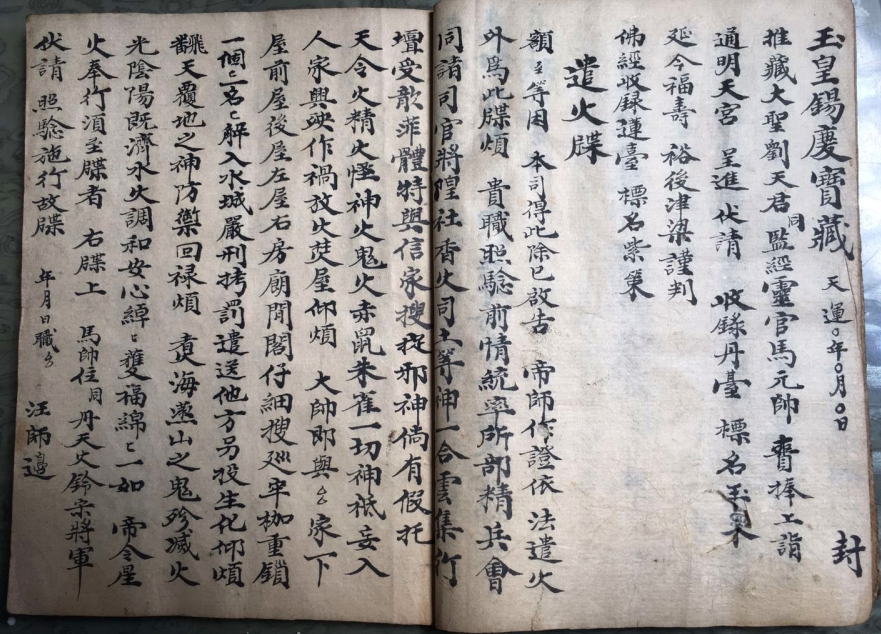 玉皇錫慶寶藏 天運〇年〇月〇日 封
推藏大聖劉天君同監經靈官馬元帥 賫捧上詣
通明天宮 呈進伏請 收錄丹臺 標名玉
延今福壽 裕後津梁謹判
佛經收録蓮臺 標名紫
遣火牒
額呈等因 本司得此除已啟告 帝師作證依法遣火
外為此牒煩 貴職照驗前情統率所部精兵會
同請司官將隍社香火司土等神一合雲集竹
壇受歆菲體特與信家搜夜邪神倘有假托
天令火精火怪神火鬼火赤鼠朱雀一切神祇妄入
人家興殃作禍放火焚屋仰煩 大帥即與厶家一下
屋前屋後屋左屋右房廟門閣仔細搜廵牢枷重鎖
一個〻名〻解入水城嚴刑拷罰遣送他方另投生化仰煩
飜天覆地之神防禦回禄煩 煑海燕山之鬼殄滅火
光陰陽既濟水火調和安心綽〻雙福綿〻一如 帝令星
火奉行須至牒者 右牒上 馬帥位同丹天火鈴宋將軍
伏請 照驗施行故牒 年月日職厶 汪師邉